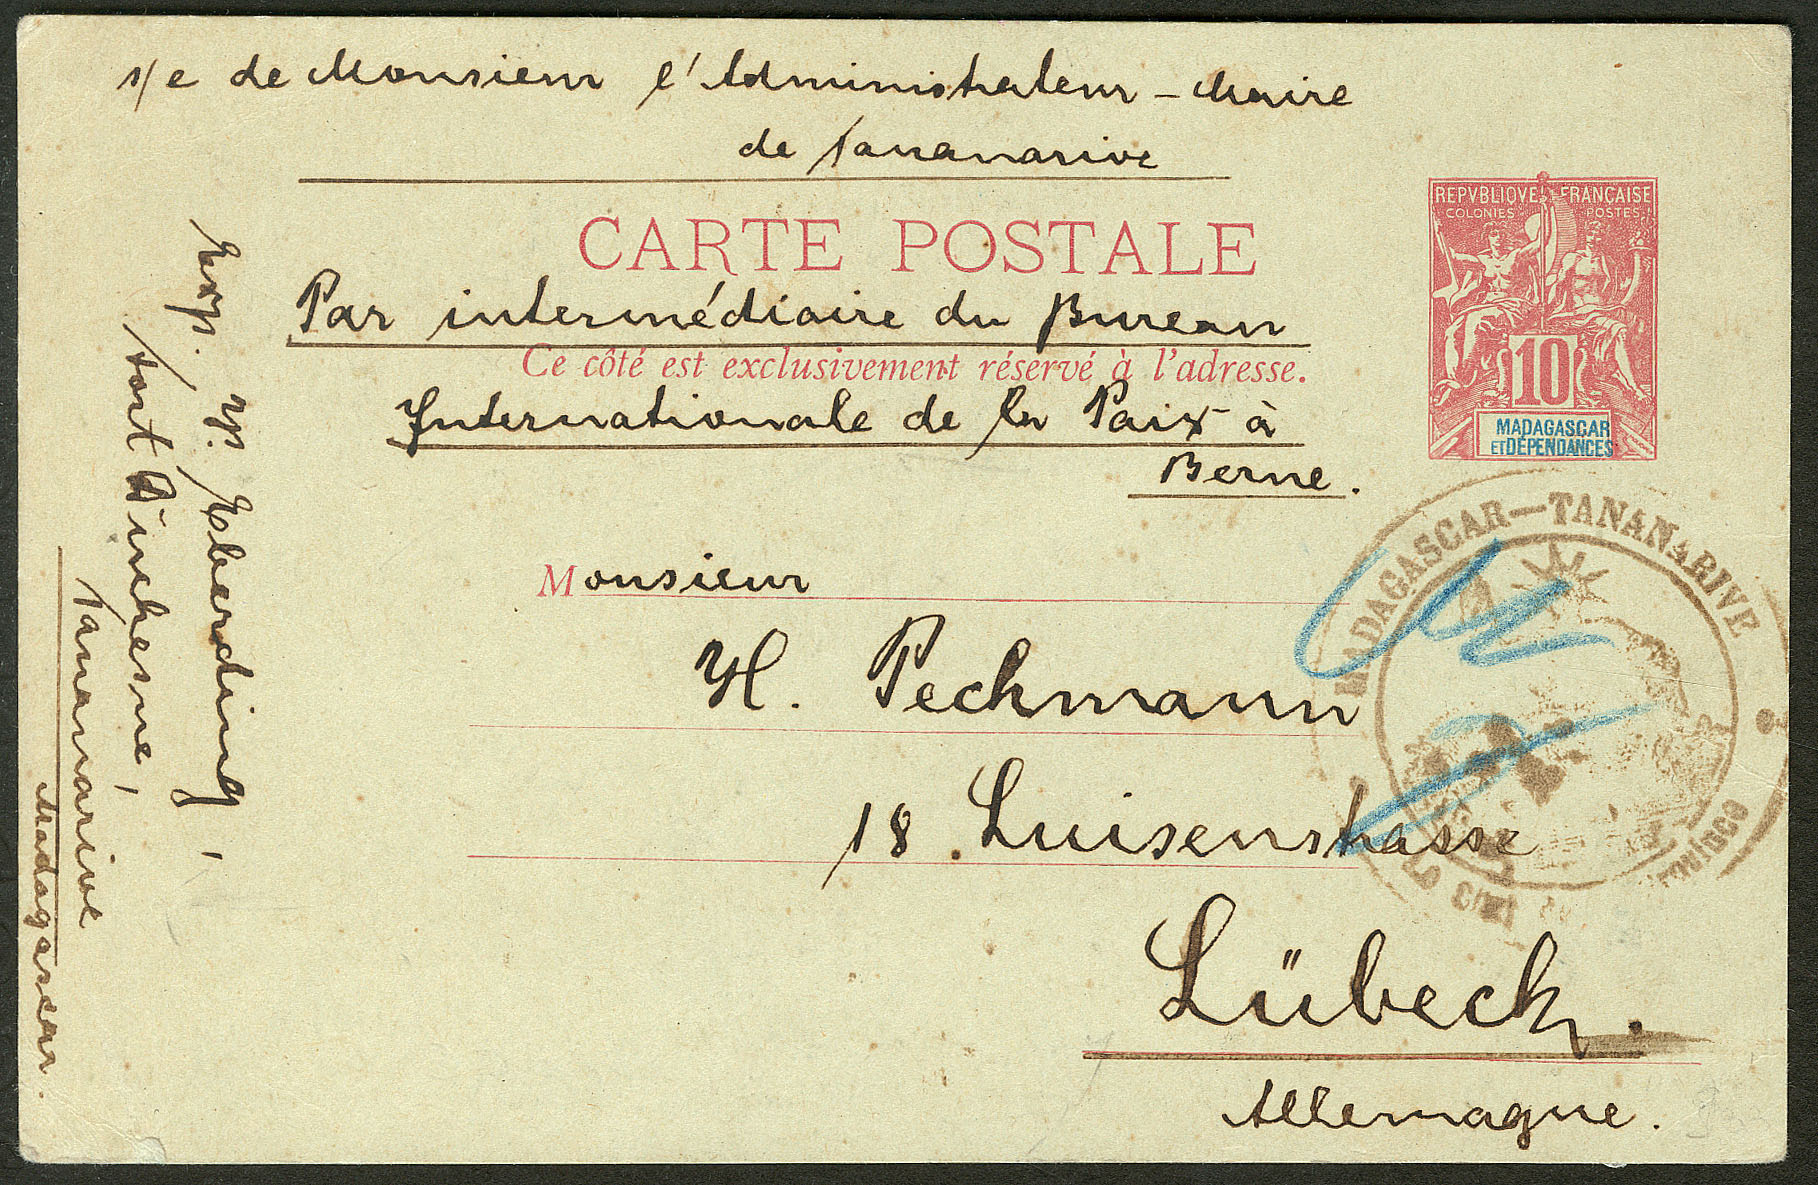 s/c de Monsieur l'Administrateur-Maire
de Tananarive
CARTE POSTALE
REPVBLIQVE FRANÇAISE
COLONIES POSTES
10
MADAGASCAR
ET DÉPENDANCES
Par intermédiaire du Bureau
Ce côté est exclusivement réservé à l'adresse.
Internationale de la Paix à
Berne.
MADAGASCAR—TANANARIVE
Monsieur
H. Pechmann
18. Luisenstrasse
Lübeck.
Allemagne.
Exp. H. Elberding,
Fort Duchesne,
Tananarive
Madagascar.